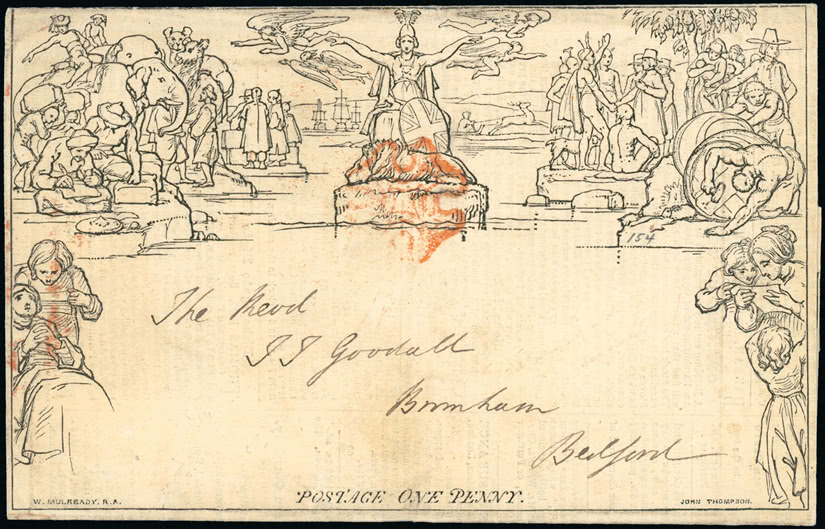 154
The Revd
J J Goodall
Bromham
Bedford
POSTAGE ONE PENNY.
W. MULREADY. R.A.
JOHN THOMPSON.